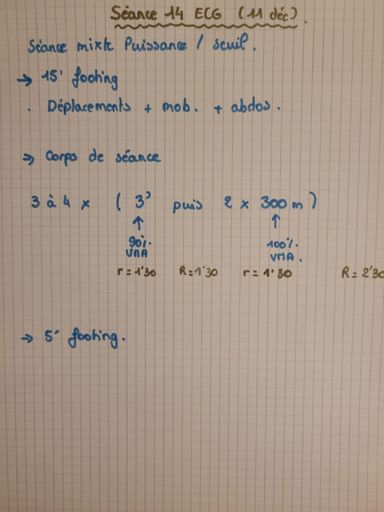 Séance 14 ECG (11 déc).
Séance mixte Puissance / seuil.
→ 15' footing
. Déplacements + mob. + abdos.
⇒ Corps de séance
3 à 4 x ( 3' puis 2 x 300 m )
↑ ↑
90% 100%
VMA VMA.
r = 1'30 R = 1'30 r = 1'30 R = 2'30
→ 5' footing.